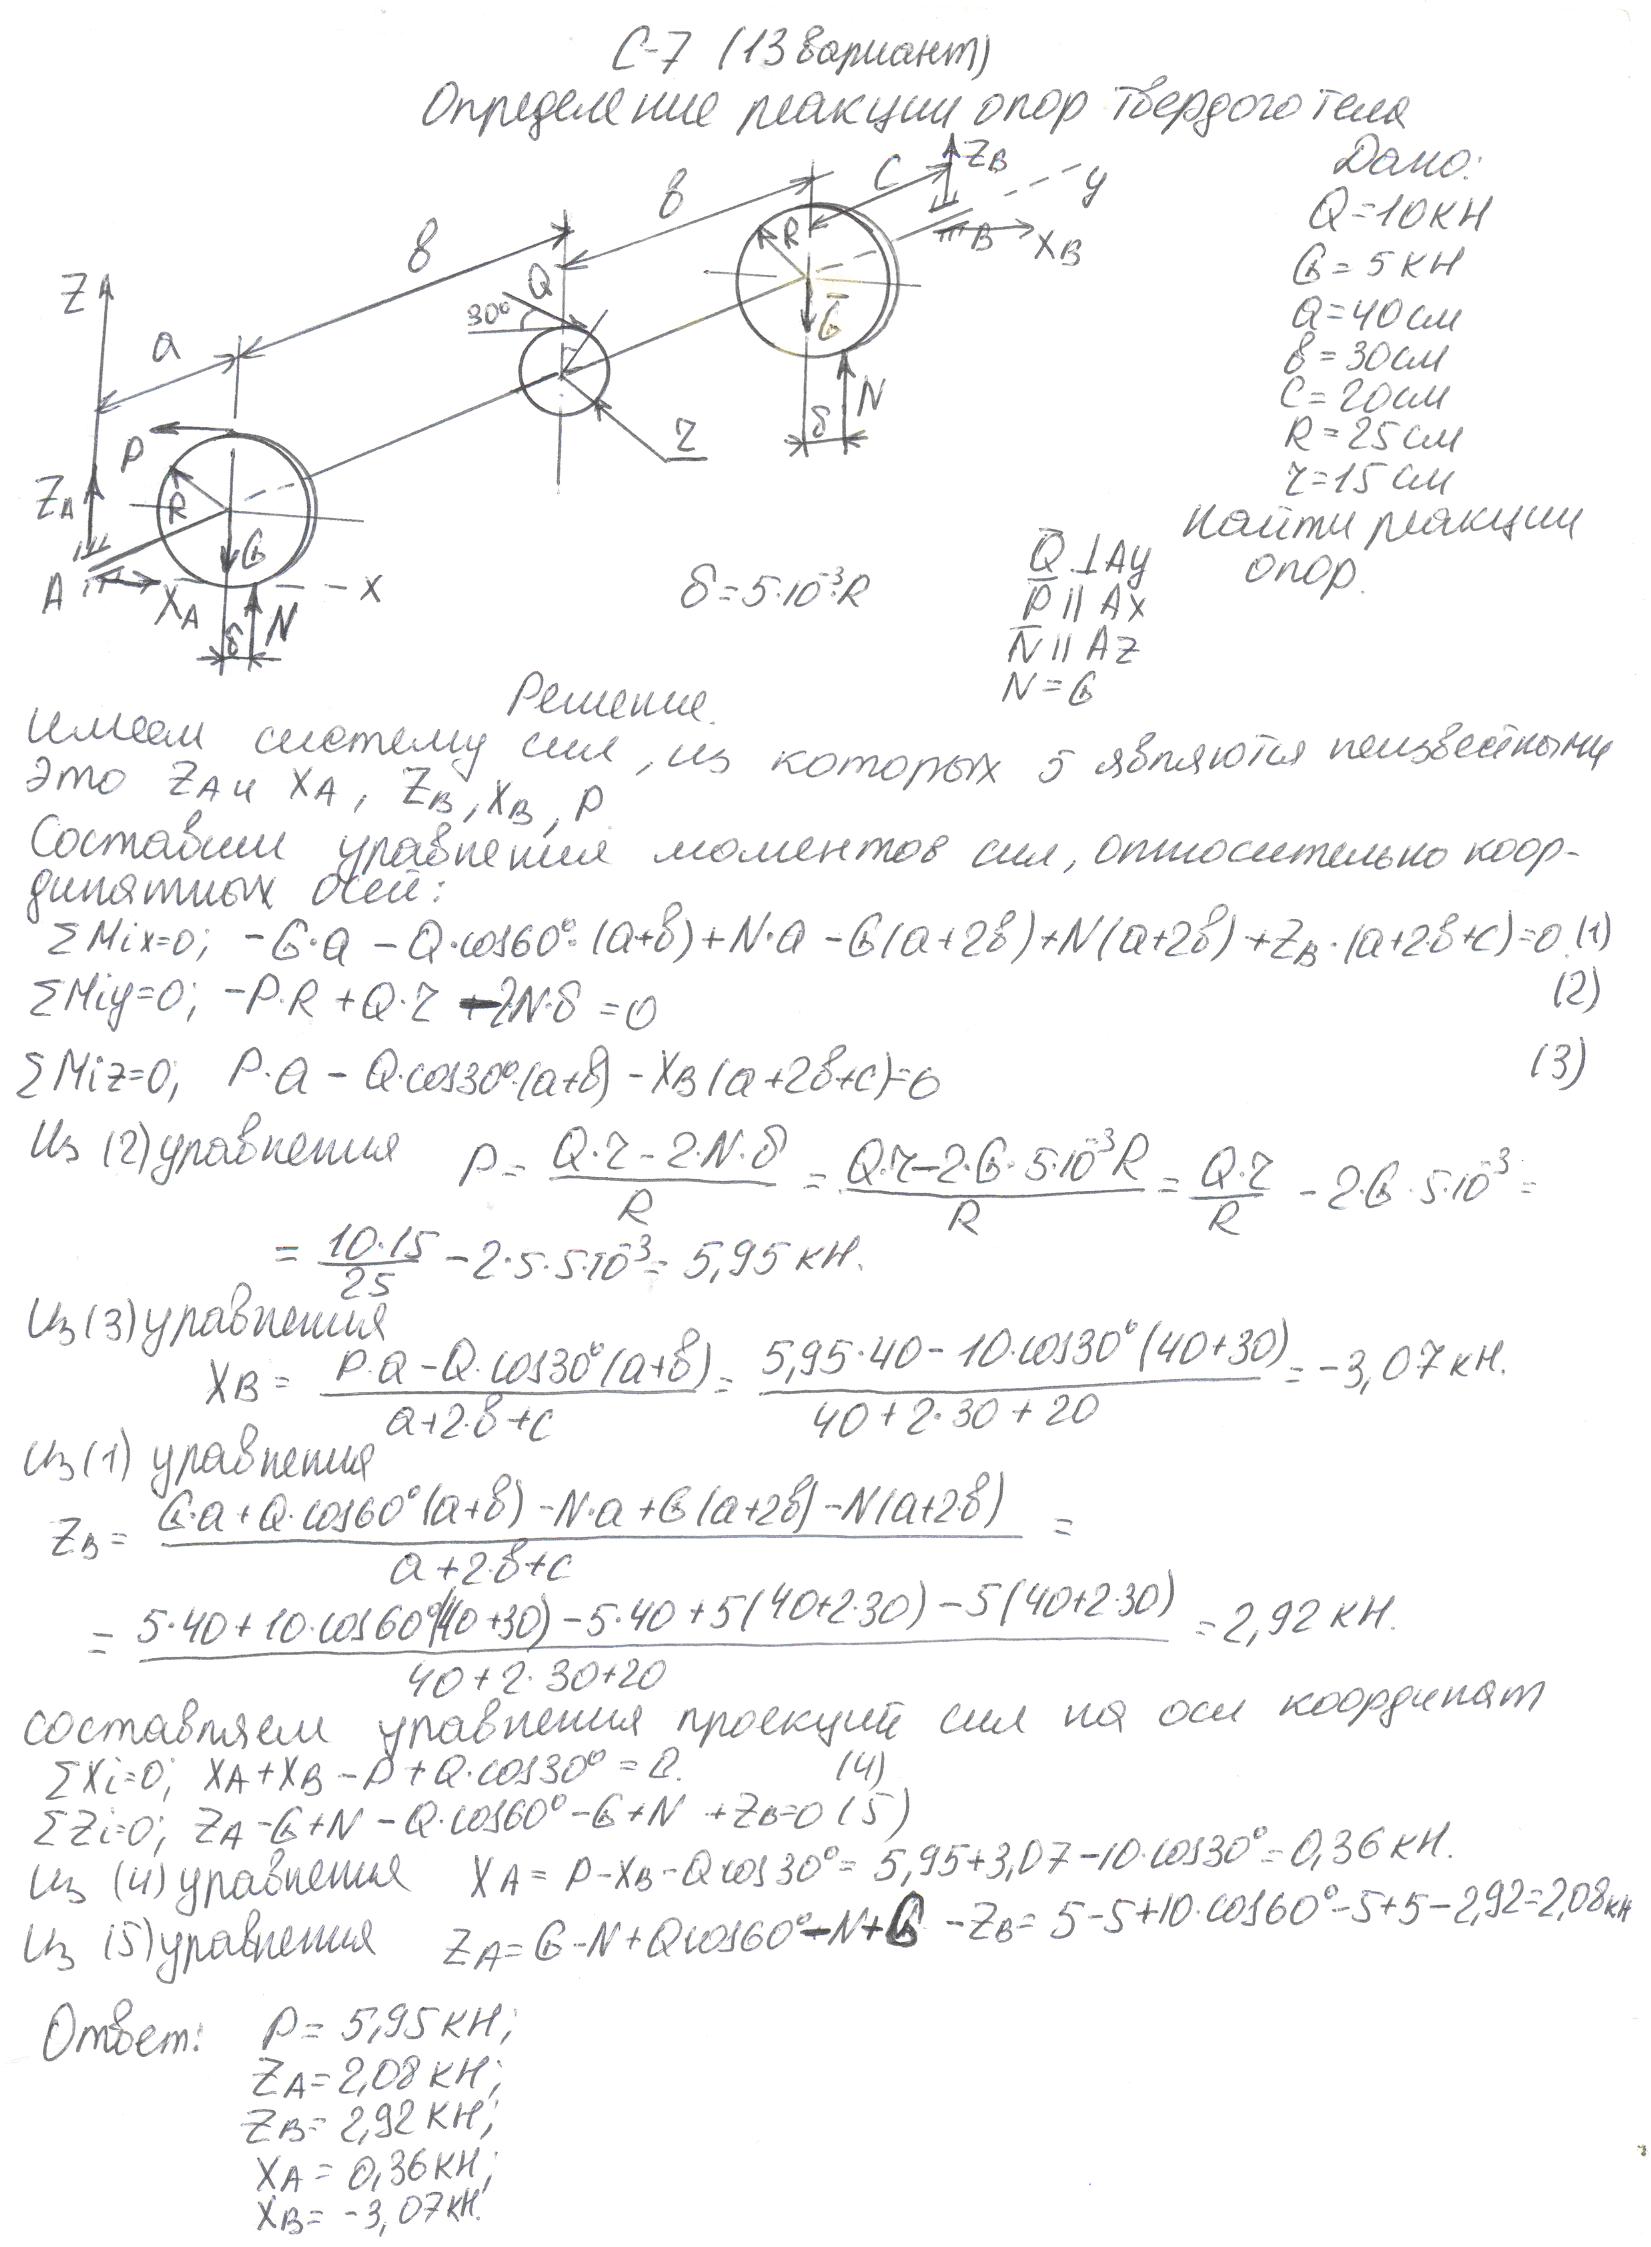 С-7 (13 вариант)
Определение реакции опор твердого тела
Дано:
Q=10кН
G=5кН
a=40см
в=30см
C=20см
R=25см
r=15см
Найти реакции
опор.
Z
a
в
в
C
ZB
y
B
XB
Q
30°
R
G
N
δ
r
P
ZA
R
G
A
XA
X
N
δ
δ=5·10⁻³·R
Q⊥Ay
P || Ax
N || Az
N=G
Решение.
Имеем систему сил, из которых 5 являются неизвестными
это ZA и XA, ZB, XB, P
Составим уравнения моментов сил, относительно коор-
динатных осей:
ΣMix=0; -G·a - Q·cos60°·(a+в)+N·a - G(a+2в)+N(a+2в)+ZB·(a+2в+c)=0 (1)
ΣMiy=0; -P·R + Q·r -2N·δ =0 (2)
ΣMiz=0; P·a - Q·cos30°·(a+в) - XB(a+2в+c)=0 (3)
Из (2) уравнения P= (Q·r - 2·N·δ)/R = (Q·r-2·G·5·10⁻³R)/R = Q·r/R - 2·G·5·10⁻³ =
= 10·15/25 - 2·5·5·10⁻³ = 5,95 кН.
Из (3) уравнения
XB = (P·a - Q·cos30°(a+в))/(a+2·в+c) = (5,95·40 - 10·cos30°(40+30))/(40+2·30+20) = -3,07 кН.
Из (1) уравнения
ZB = (G·a+Q·cos60°(a+в) - N·a + G(a+2в) - N(a+2в))/(a+2·в+c) =
= (5·40+10·cos60°(40+30) - 5·40 + 5(40+2·30) - 5(40+2·30))/(40+2·30+20) = 2,92 кН.
составляем уравнения проекций сил на оси координат
ΣXi=0; XA+XB - P + Q·cos30° = 0. (4)
ΣZi=0; ZA - G+N - Q·cos60° - G+N +ZB=0 (5)
Из (4) уравнения XA= P-XB-Qcos30°= 5,95+3,07-10·cos30°=0,36 кН.
Из (5) уравнения ZA= G-N+Qcos60°-N+G -ZB= 5-5+10·cos60°-5+5-2,92=2,08кН
Ответ: P= 5,95 кН;
ZA= 2,08 кН;
ZB= 2,92 кН;
XA = 0,36 кН;
XB= -3,07кН.